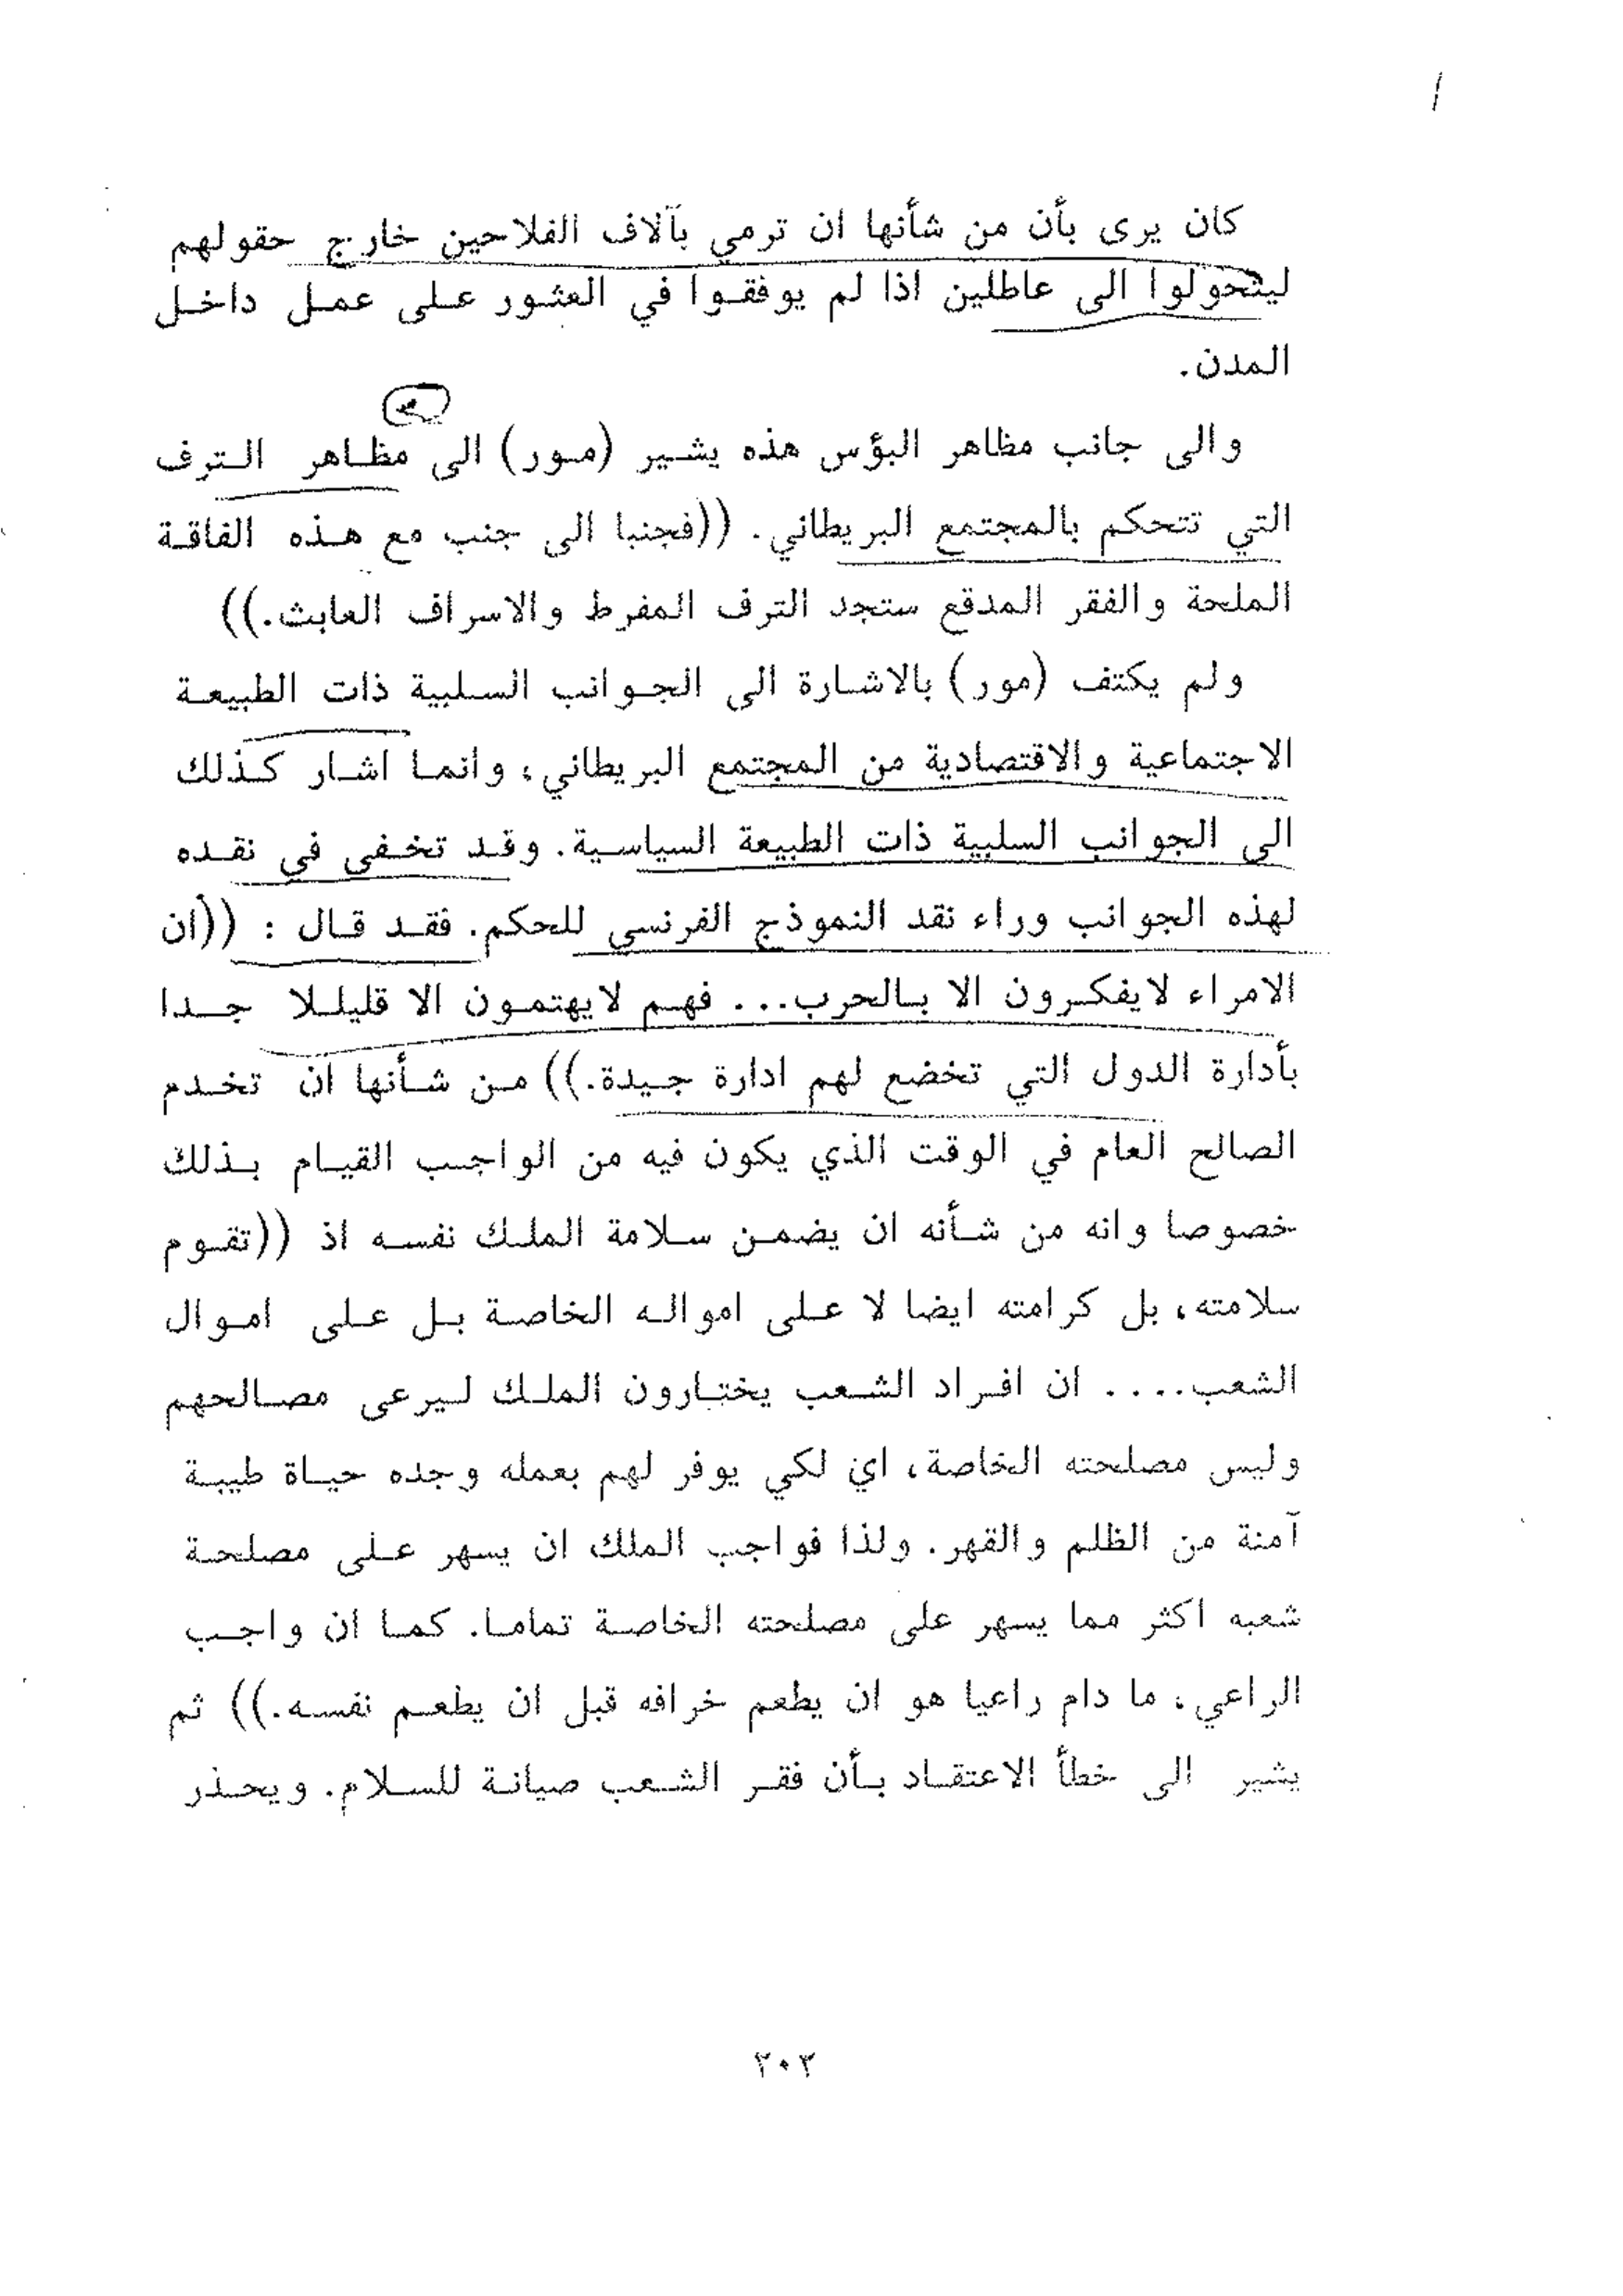 كان يرى بأن من شأنها ان ترمي بآلاف الفلاحين خارج حقولهم
ليتحولوا الى عاطلين اذا لم يوفقوا في العثور على عمل داخل
المدن.
والى جانب مظاهر البؤس هذه يشير (مور) الى مظاهر الترف
التي تتحكم بالمجتمع البريطاني. ((فجنبا الى جنب مع هذه الفاقة
الملحة والفقر المدقع ستجد الترف المفرط والاسراف العابث.))
ولم يكتف (مور) بالاشارة الى الجوانب السلبية ذات الطبيعة
الاجتماعية والاقتصادية من المجتمع البريطاني، وانما اشار كذلك
الى الجوانب السلبية ذات الطبيعة السياسية. وقد تخفى في نقده
لهذه الجوانب وراء نقد النموذج الفرنسي للحكم. فقد قال : ((ان
الامراء لايفكرون الا بالحرب... فهم لايهتمون الا قليللا جدا
بأدارة الدول التي تخضع لهم ادارة جيدة.)) من شأنها ان تخدم
الصالح العام في الوقت الذي يكون فيه من الواجب القيام بذلك
خصوصا وانه من شأنه ان يضمن سلامة الملك نفسه اذ ((تقوم
سلامته، بل كرامته ايضا لا على امواله الخاصة بل على اموال
الشعب.... ان افراد الشعب يختارون الملك ليرعى مصالحهم
وليس مصلحته الخاصة، اي لكي يوفر لهم بعمله وجده حياة طيبة
آمنة من الظلم والقهر. ولذا فواجب الملك ان يسهر على مصلحة
شعبه اكثر مما يسهر على مصلحته الخاصة تماما. كما ان واجب
الراعي، ما دام راعيا هو ان يطعم خرافه قبل ان يطعم نفسه.)) ثم
يشير الى خطأ الاعتقاد بأن فقر الشعب صيانة للسلام. ويحذر
٢٠٢